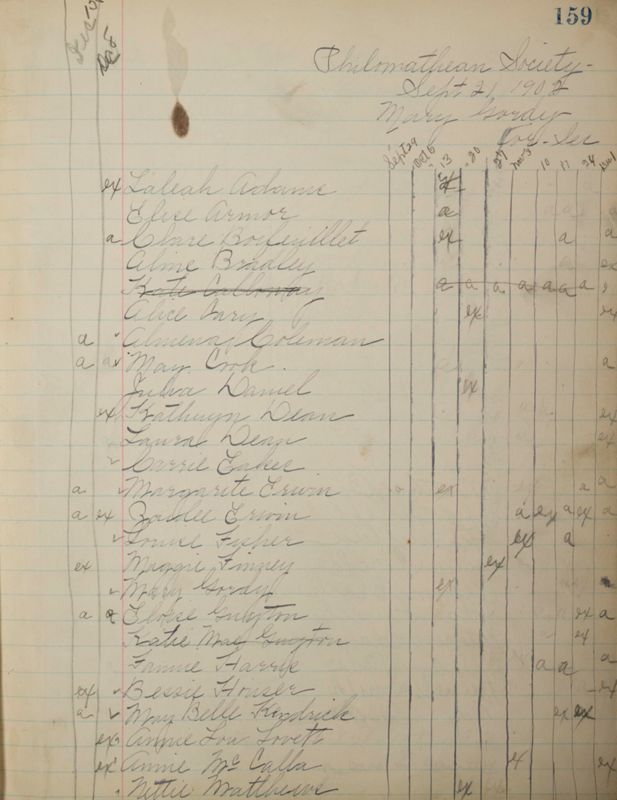 159
Dec 15
Dec 8
Philomathean Society-
Sept 21, 1902
Mary Gordy
Cor-Sec
Sept 29 Oct 6 13 20 27 Nov 3 10 17 24 Dec 1
ex Laleah Adams
Elise Armor a
a Clare Boifeuillet ex a a
Aline Bradley ex
Kate Calloway a a a a a a a
Alice Cary ex ex
a Almena Coleman
a a May Crook a
Julia Daniel ex
ex Kathryn Dean ex
Laura Dean ex
Carrie Eakes
a Margarite Erwin a ex a a
a ex Erwin a ex a ex a
Louise Fisher ex a
ex Maggie Finney ex
Mary Gordy ex
a a Eloise Guyton ex a
Katie Mae Guyton ex
Fannie Harris a a a
ex Bessie Houser ex
a May Belle Kendrick ex ex
ex Annie Lou Lovett
ex Annie McCalla ex ex
Nettie Matthews ex